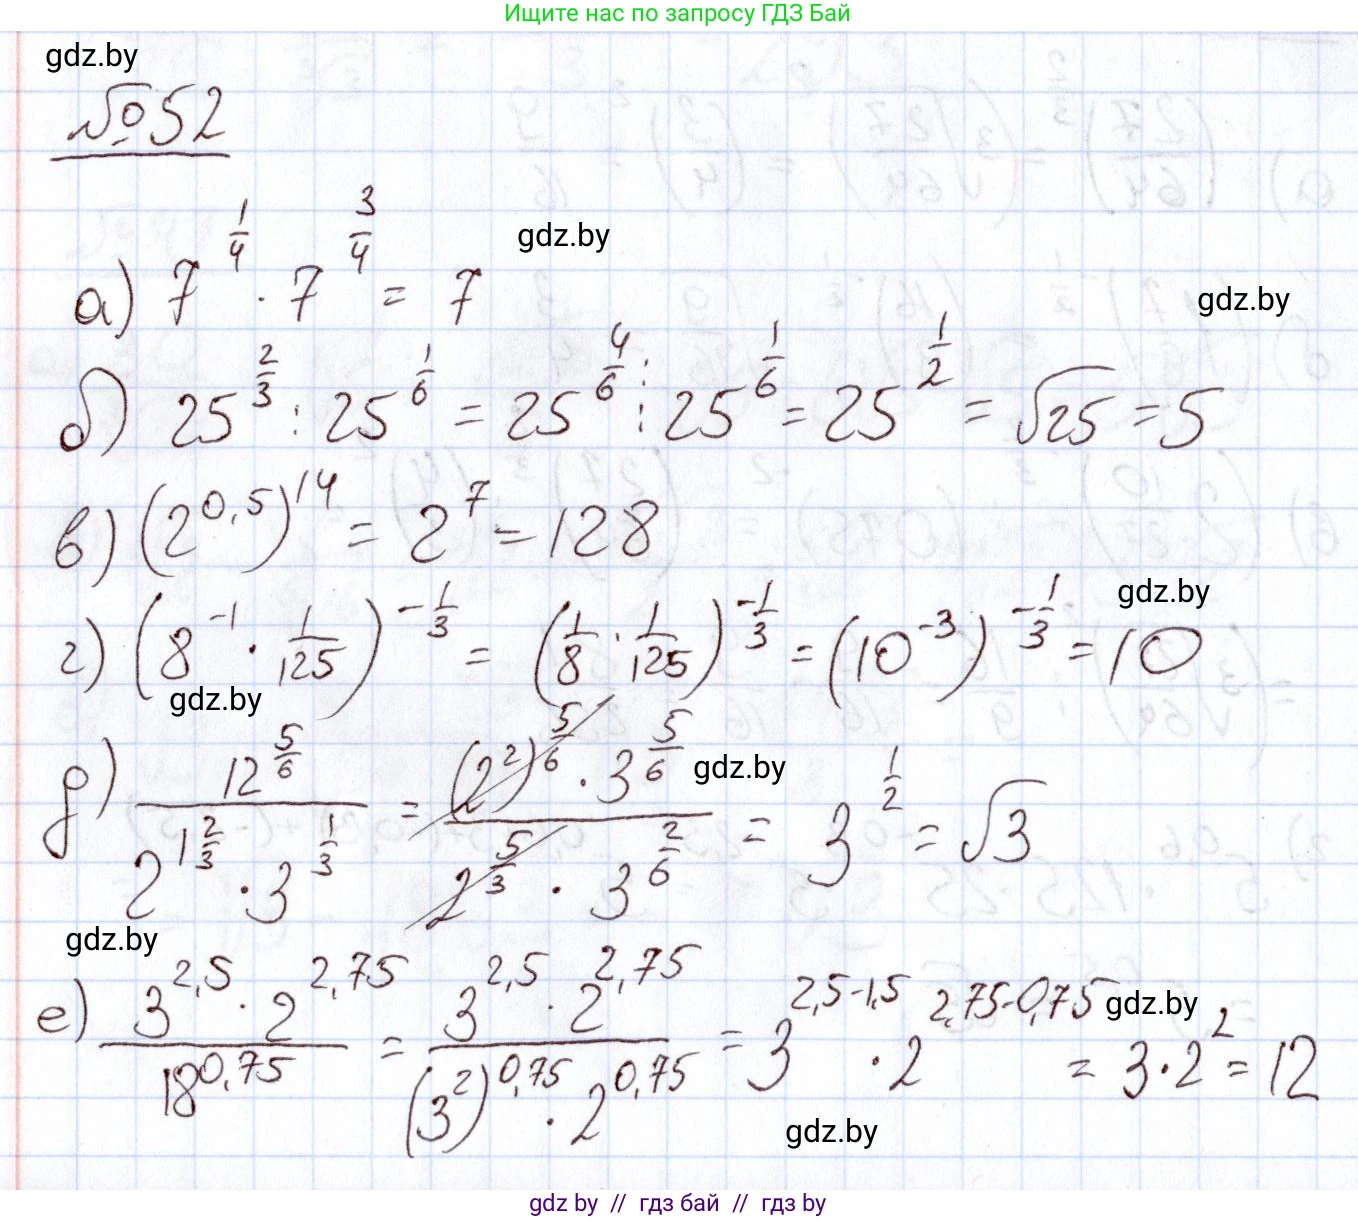 Ищите нас по запросу ГДЗ Бай
gdz.by
№52
gdz.by
а) 7^{1/4} · 7^{3/4} = 7
gdz.by
б) 25^{2/3} : 25^{1/6} = 25^{4/6} : 25^{1/6} = 25^{1/2} = √25 = 5
в) (2^{0,5})^{14} = 2^7 = 128
gdz.by
г) (8^{-1} · 1/125)^{-1/3} = (1/8 · 1/125)^{-1/3} = (10^{-3})^{-1/3} = 10
gdz.by
gdz.by
д) 12^{5/6} / (2^{1 2/3} · 3^{1/3}) = ((2^2)^{5/6} · 3^{5/6}) / (2^{5/3} · 3^{2/6}) = 3^{1/2} = √3
gdz.by
е) (3^{2,5} · 2^{2,75}) / 18^{0,75} = (3^{2,5} · 2^{2,75}) / ((3^2)^{0,75} · 2^{0,75}) = 3^{2,5-1,5} · 2^{2,75-0,75} = 3 · 2^2 = 12
gdz.by
gdz.by
gdz by // гдз бай // гдз by